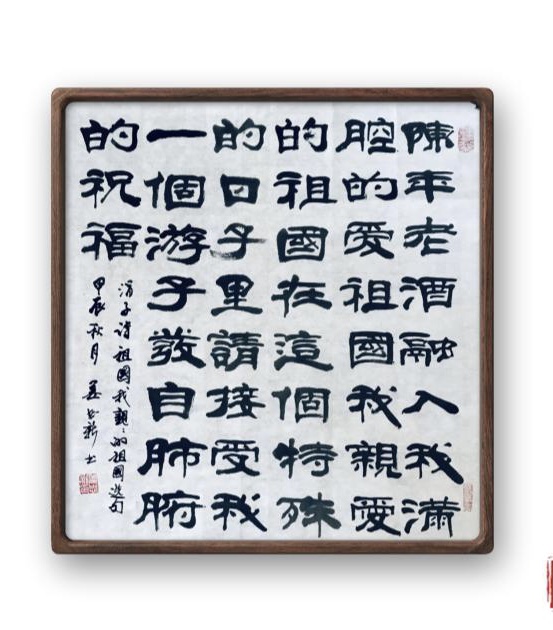 陳年老酒融入我滿
腔的愛祖國我親愛
的祖國在這個特殊
的日子里請接受我
一個游子發自肺腑
的祝福
子诗祖國我親的祖國选句
甲辰秋月